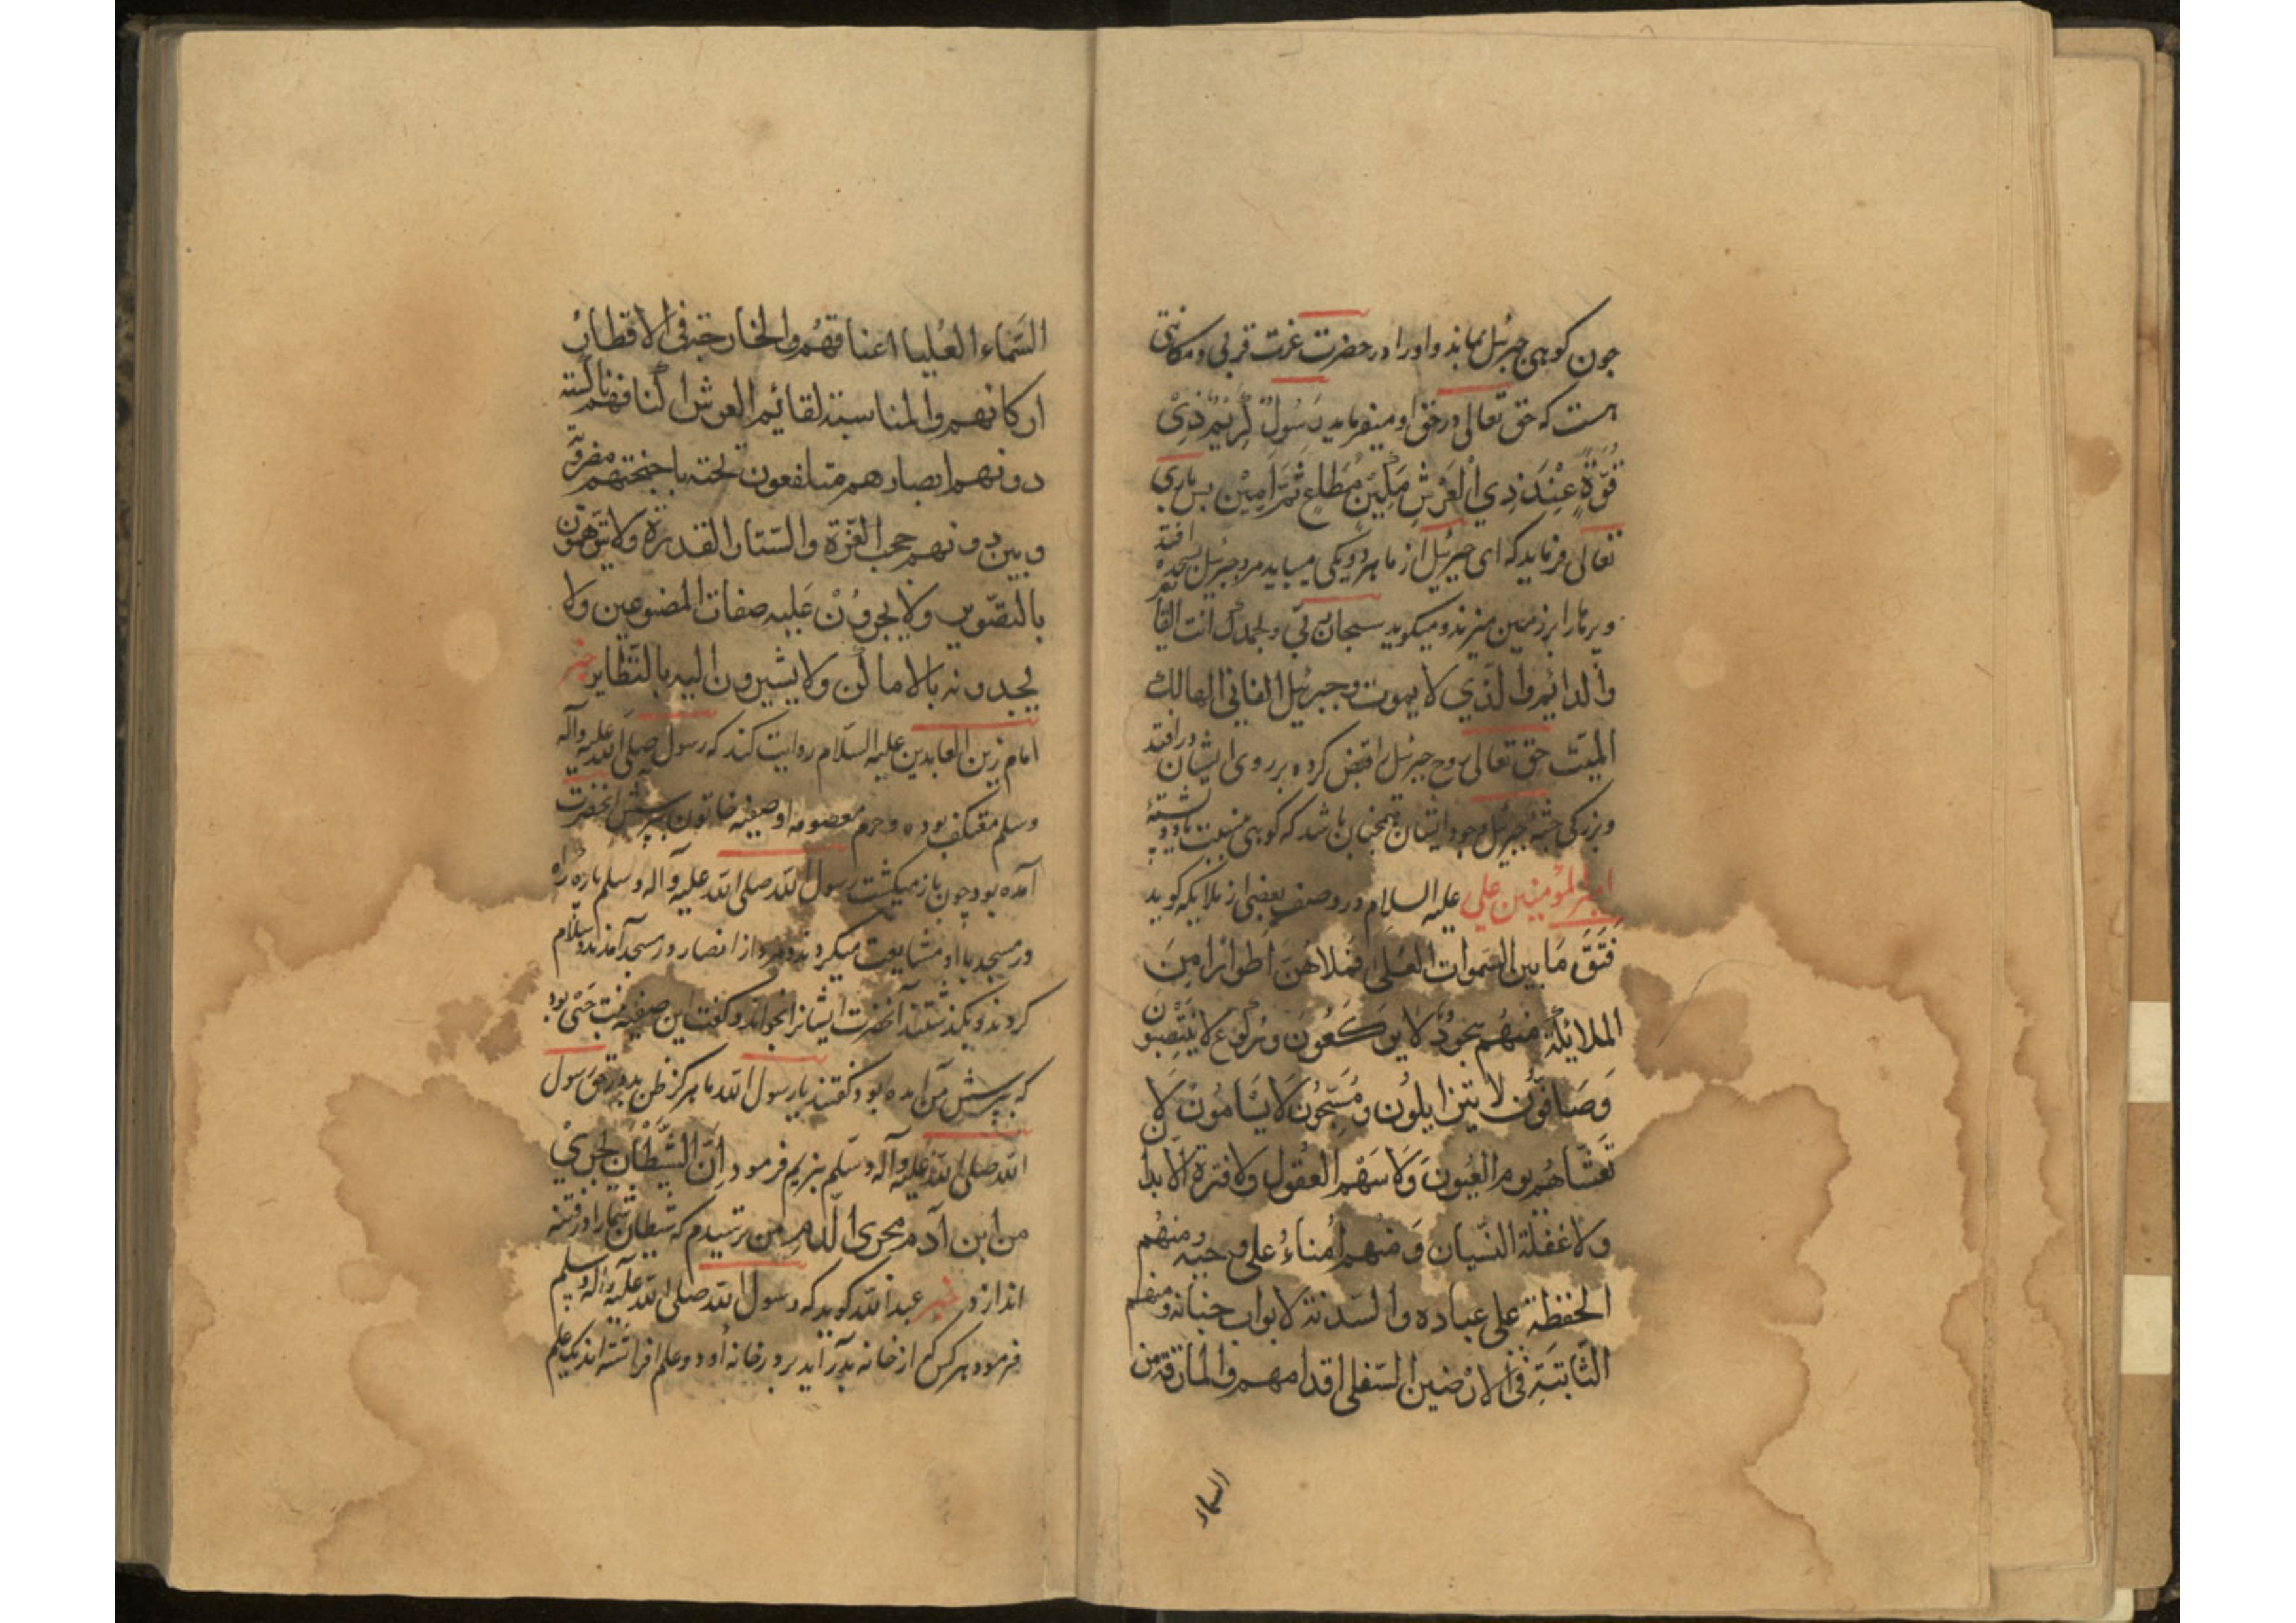 جون کوهی جبرئیل بماند و او را در حضرت عزت قربی و مکانتی
هست که حق تعالی در حق او میفرماید رَسُولٍ کَرِیْمٍ ذِیْ
قُوَّةٍ عِنْدَ ذِي الْعَرْشِ مَکِیْنٍ مُطَاعٍ ثَمَّ اَمِیْنٍ بس باری
تعالی فرماید که ای جبرئیل از ما هر دو یکی میباید مرد جبرئیل بسجده افتد
و برها را بر زمین میزند و میکوید سبحان ربی و بحمدک انت الباقی
والدائم والذي لا یموت وجبرئیل الفاني الهالك
المیّت حق تعالی روح جبرئیل را قبض کرده بر روی ایشان در افتد
و بزرکی جثهٔ جبرئیل وجود ایشان همجنان باشد که کوهی
امیر المؤمنین علي علیه السلام در وصف بعضی از ملایکه کوید
فَتَقَ مَا بین السموات العُلیٰ فَمَلاهُنَّ اَطوارا مِنَ
الملائکة منهُم سجودٌ لا یرکعُونَ و رُکوع لا یَنتصِبون
وَصَافّون لا یتزایلون و مُسَبّحُون لَا یَسْامُونَ لَا
تغشاهُم نوم العُیونَ وَلَا سَهْو العُقول ولا فترة الابدان
ولا غفلة النّسیان وَمنهم اُمناءُ علی وحیه ومنهُم
الحفظة علی عباده والسّدنة لابواب جنانه ومنهم
الثّابتَة في الارضین السّفلی اقدامهم والمارقة من
السماء
السّماء العُلیا اعناقهُم والخارجة في الاقطار
ارکانهم والمناسبة لقائم العرش اکتافهم ناکسة
دونهم ابصارهم متلفعون تحته باجنحتهم مضروبة
وبین دونهم حجب العزّة والسّتار القدرة ولا یتوهمون
بالتصّویر ولا یجرون علیه صفات المصنوعین ولا
یحدونه بالاماکن ولا یشیرون الیه بالنّظایر خبر
امام زین العابدین علیه السّلام روایت کند که رسول صلی الله علیه وآله
وسلم معتکف بوده و حرم معصومه او صفیّه خاتون ببرسش انحضرت
آمده بود چون باز میکشت رسول الله صلی الله علیه وآله وسلم باره راه
در مسجد با او مشایعت میکردند دو مرد از انصار در مسجد آمدند و سلام
کردند و بکذشتند آنحضرت ایشانرا بخواند و کفت این صفیه بنت حَیّی بود
که ببرسش من آمده بود کفتند یا رسول الله ما هرکز ظن بد در حق رسول
الله صلی الله علیه وآله وسلّم نبریم فرمود اِنَّ الشَّیْطَانَ یجري
من ابن آدم مجری الدّم من ترسیدم که شیطان شما را در فتنه
اندازد خبر عبد الله کوید که رسول الله صلی الله علیه وآله وسلم
فرمود هر کس که از خانه بدر آید بر در خانه او دو علم افراشته اند یک علم